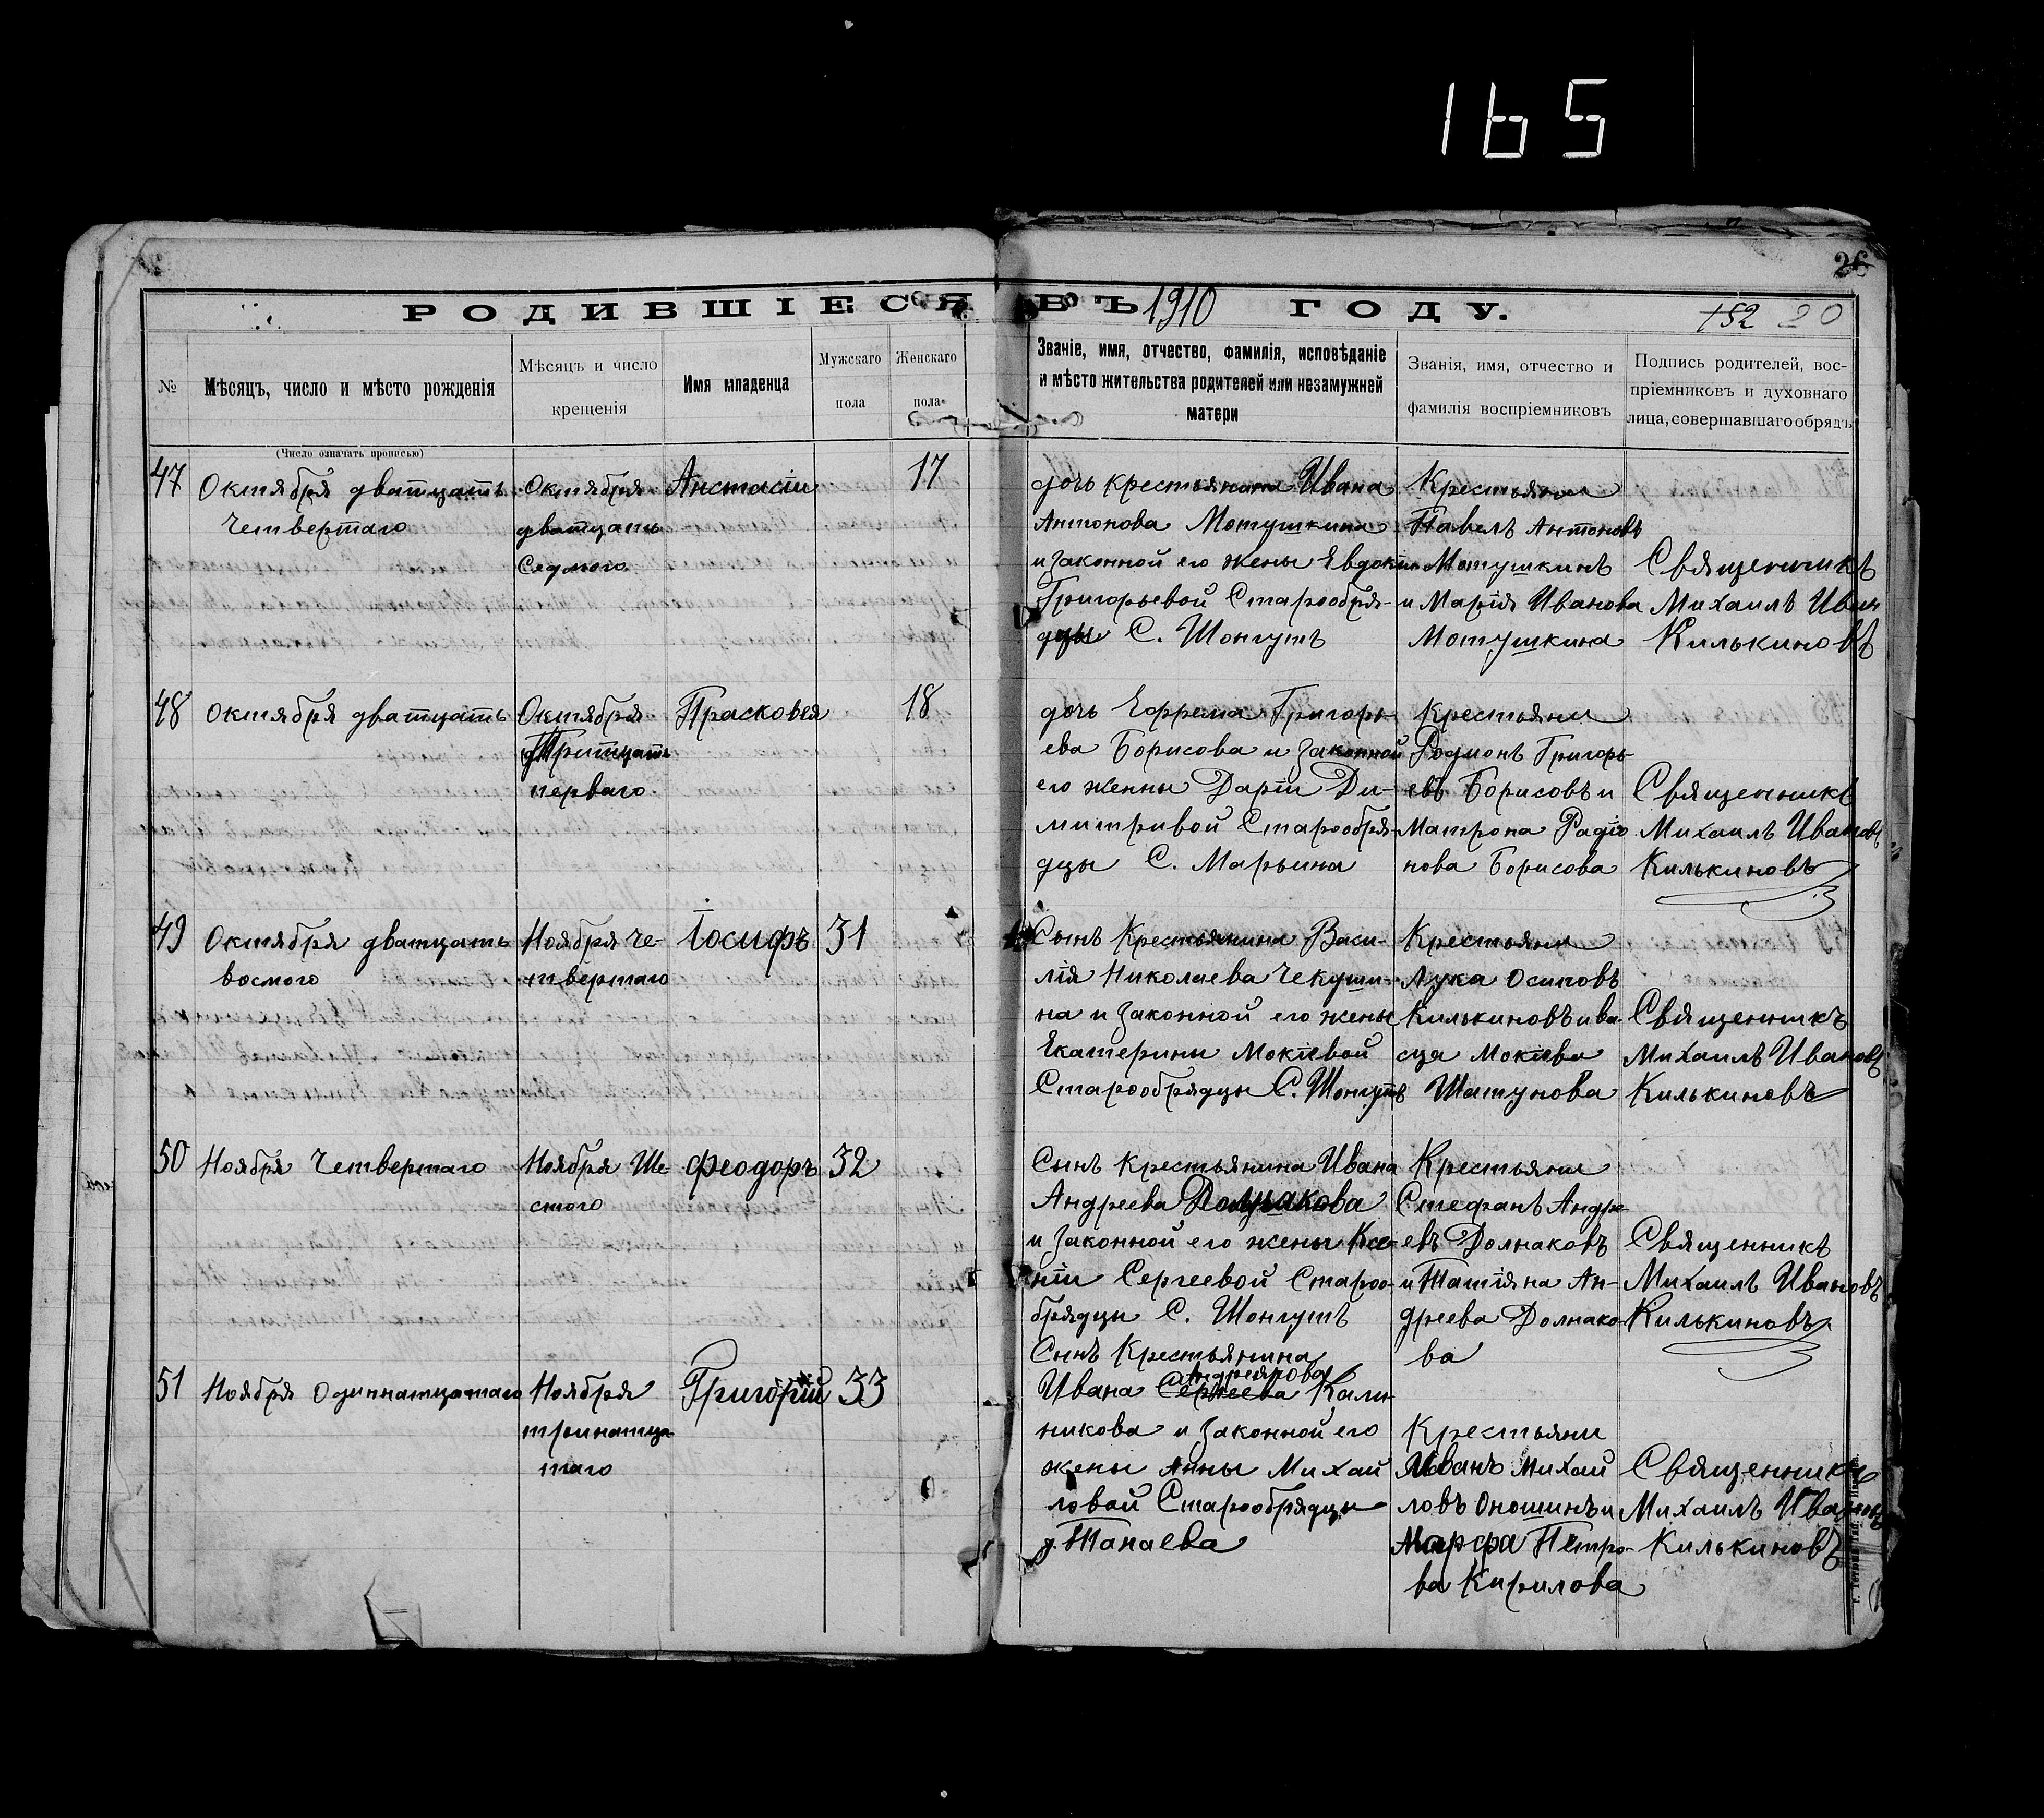 165
26
РОДИВШІЕСЯ ВЪ 1910 ГОДУ.
152 20
№
Мѣсяцъ, число и мѣсто рожденія
Мѣсяцъ и число
крещенія
Имя младенца
Мужскаго
пола
Женскаго
пола
Званіе, имя, отчество, фамилія, исповѣданіе
и мѣсто жительства родителей или незамужней
матери
Званія, имя, отчество и
фамилія воспріемниковъ
Подпись родителей, вос-
пріемниковъ и духовнаго
лица, совершавшаго обрядъ
(Число означать прописью)
47
Октября дватцать
четвертаго
Октября
дватцать
Седмого
Анстасіи
17
дочь крестьянина Ивана
Антонова Мотушкина
и законной его жены Евдокіи
Григорьевой Старообря-
дцы С. Шонгутъ
Крестьяни
Павелъ Антоновъ
Мотушкинъ
и Марія Иванова
Мотушкина
Священникъ
Михаилъ Иван
Килькиновъ
48
Октября дватцать
Октября
Тритцать
перваго
Прасковея
18
дочь Ефрема Григорь-
ева Борисова и законной
его женны Даріи Ди-
митривой Старообря-
дцы С. Марьина
Крестьяни
Родионъ Григорь-
евъ Борисовъ и
Матрона Радіо
нова Борисова
Священникъ
Михаилъ Ивановъ
Килькиновъ
49
Октября дватцать
восмого
Ноября че-
твертаго
Іосифъ
31
Сынъ Крестьянина Васи-
лія Николаева Чекуши-
на и законной его жены
Екатерины Мокіевой
Старообрядцы С. Шонгутъ
Крестьяни
Лука Осиповъ
Килькиновъ и ва-
сца Мокіева
Шатунова
Священникъ
Михаилъ Ивановъ
Килькиновъ
50
Ноября Четвертаго
Ноября Ше-
стого
Феодоръ
32
Сынъ крестьянина Ивана
Андреева
и законной его жены Ксе-
ніи Сергеевой Староо-
брядцы С. Шонгутъ
Крестьяни
Стефанъ Андре-
евъ Долнаковъ
и Татіяна Ан-
дреева Долнако-
ва
Священникъ
Михаилъ Ивановъ
Килькиновъ
51
Ноября Одиннатцатаго
Ноября
тринатца
таго
Григорій
33
Сынъ Крестьянина
Андреянова
Ивана Сергеева Кали-
никова и законной его
жены Анны Михай
ловой Старообрядцы
д. Танаева
Крестьяни
Иванъ Михай
ловъ Оношинъ и
Марфа Петро-
ва Кирилова
Священникъ
Михаилъ Ивановъ
Килькиновъ